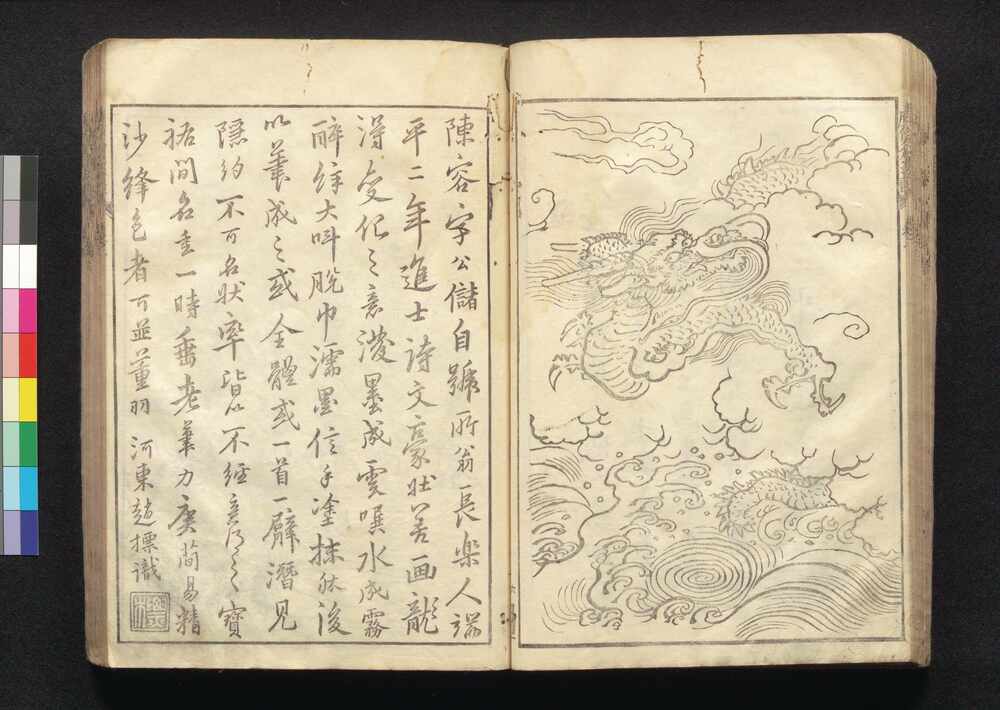 陳容字公儲自號所翁長樂人端
平二年進士詩文豪壯善画龍
得変化之意潑墨成雲噀水成霧
醉餘大叫脫巾濡墨信手塗抹然後
以筆成之或全體或一首一臂潛見
隱約不可名狀率皆以不經意得之寶
祐間名重一時垂老筆力簡易精
妙絳色者可並董羽 河東趙標識